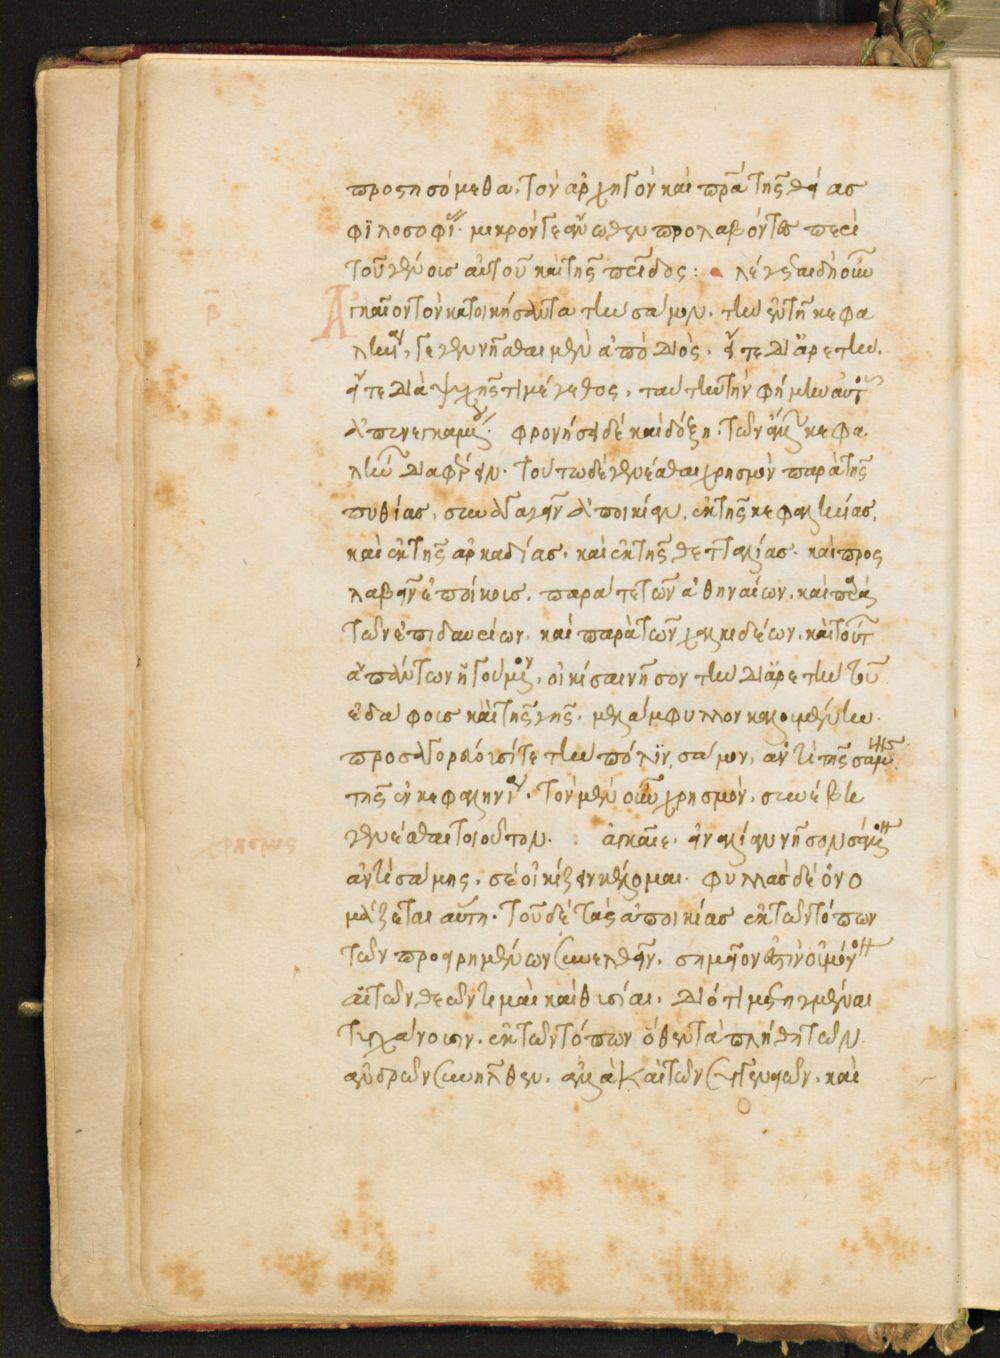 προστησόμεθα, τὸν ἀρχηγὸν καὶ πρα τῆς θείας
φϊλοσοφί. μικρόν γε ἄνωθεν προλαβόντες περὶ
τοῦ γένους αὐτοῦ καὶ τῆς πατρίδος: λέγεται δὴ οὖν
Ἀγκαῖον τὸν κατοικήσαντα τὴν σάμον, τὴν ἐν τῆ κεφα
ληνί, γεγενῆσθαι μὲν ἀπὸ διός, εἴτε δι' ἀρετὴν,
εἴτε διὰ ψυχῆς τι μέγεθος, ταύτην τὴν φήμην αὐτοῦ
ἀπενεγκαμεν. φρονήσει δὲ καὶ δόξη τῶν ἄλλ κεφα
λήν διαφέρειν. τούτω δὲ γενέσθαι χρησμὸν παρὰ τῆς
πυθίας, συναγαγεῖν ἀποικίαν, ἐκ τῆς κεφαλληνίας,
καὶ ἐκ τῆς ἀρκαδίας, καὶ ἐκ τῆς θετταλίας. καὶ προς
λαβεῖν ἐποίκους, παρά τε τῶν ἀθηναίων, καὶ παρὰ
τῶν ἐπιδαυρίων, καὶ παρὰ τῶν χαλκιδέων, καὶ τούτ
ἁπάντων ἡγούμεν, οἰκίσαι νῆσον τὴν δι' ἀρετὴν τοῦ
ἐδάφους καὶ τῆς γῆς, μελάμφυλλον καλουμένην.
προσαγορεύσαί τε τὴν πόλϊν, σάμον, ἀντὶ τῆς σάμης
τῆς ἐν κεφαληνία. τὸν μὲν οὖν χρησμὸν, συνέβη
γενέσθαι τοιοῦτον. : ἀγκαῖε, εἰναλίαν νῆσον σάμον
ἀντὶ σάμης, σὲ οἰκίζειν κέλομαι. φυλλὰς δὲ ὀνο
μάζεται αὕτη. τοῦ δὲ τὰς ἀποικίας ἐκ τῶν τόπων
τῶν προειρημένων συνελθεῖν, σημεῖον ἐστιν οὐ μόν
αἱ τῶν θεῶν τιμαὶ καὶ θυσίαι, διότι μετηγμέναι
τυγχάνουσιν, ἐκ τῶν τόπων ὅθεν τὰ πλήθη τῶν
ἀνδρῶν συνῆλθεν, ἀλλὰ καὶ τῶν συγγενειῶν, καὶ
β